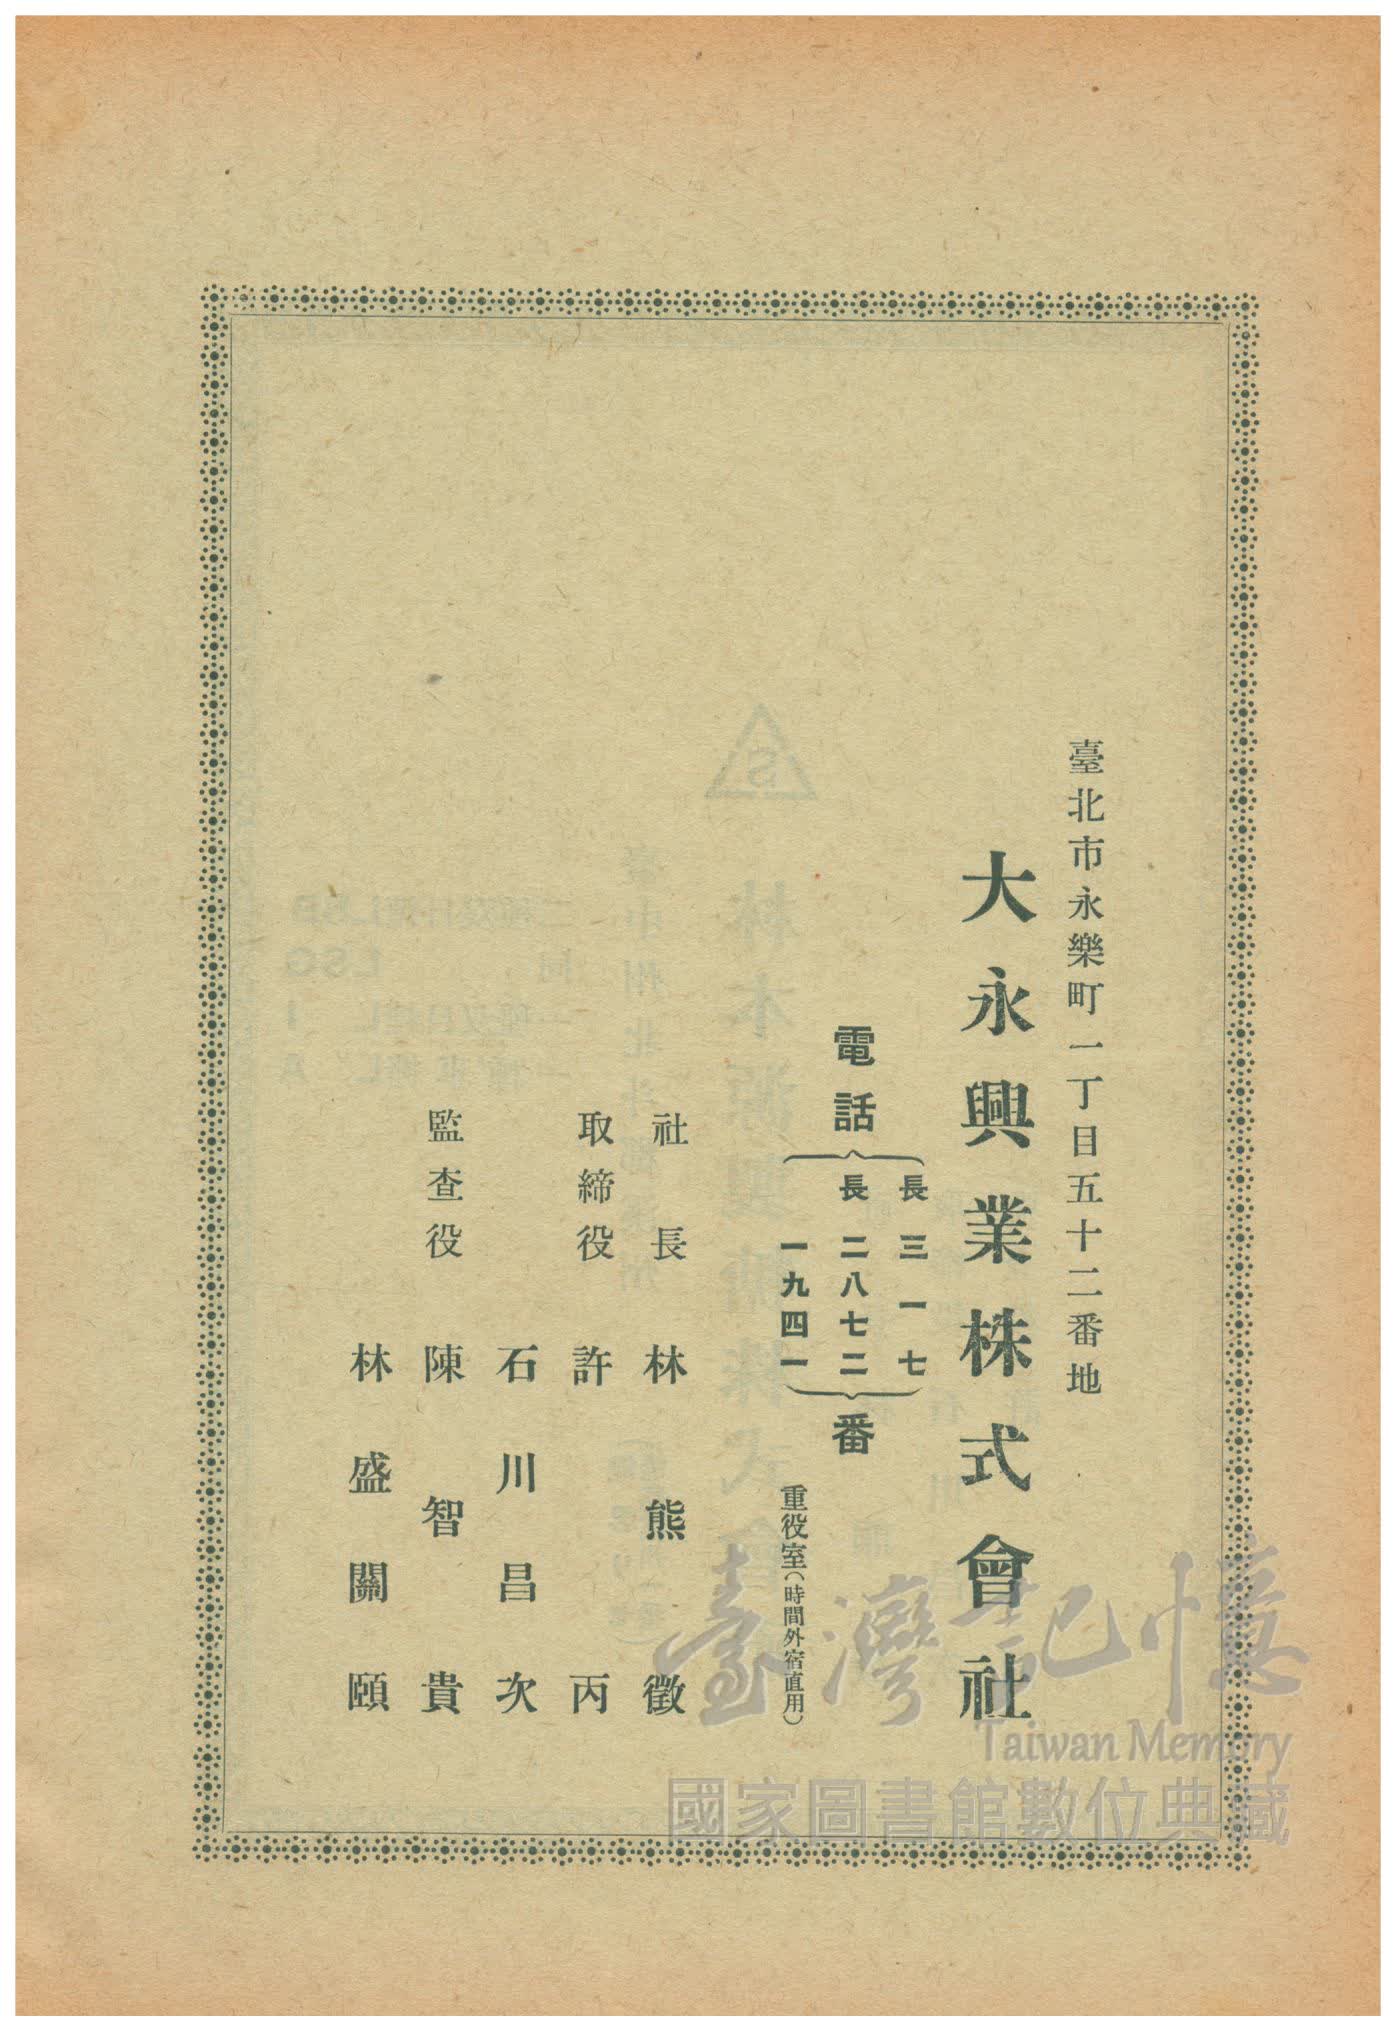 臺北市永樂町一丁目五十二番地
大永興業株式會社
電話
長三一七
長二八七二
一九四一
番
重役室(時間外宿直用)
社長 林熊徵
取締役 許丙
石川昌次
監查役 陳智貴
林盛關頤
臺灣記憶
Taiwan Memory
國家圖書館數位典藏